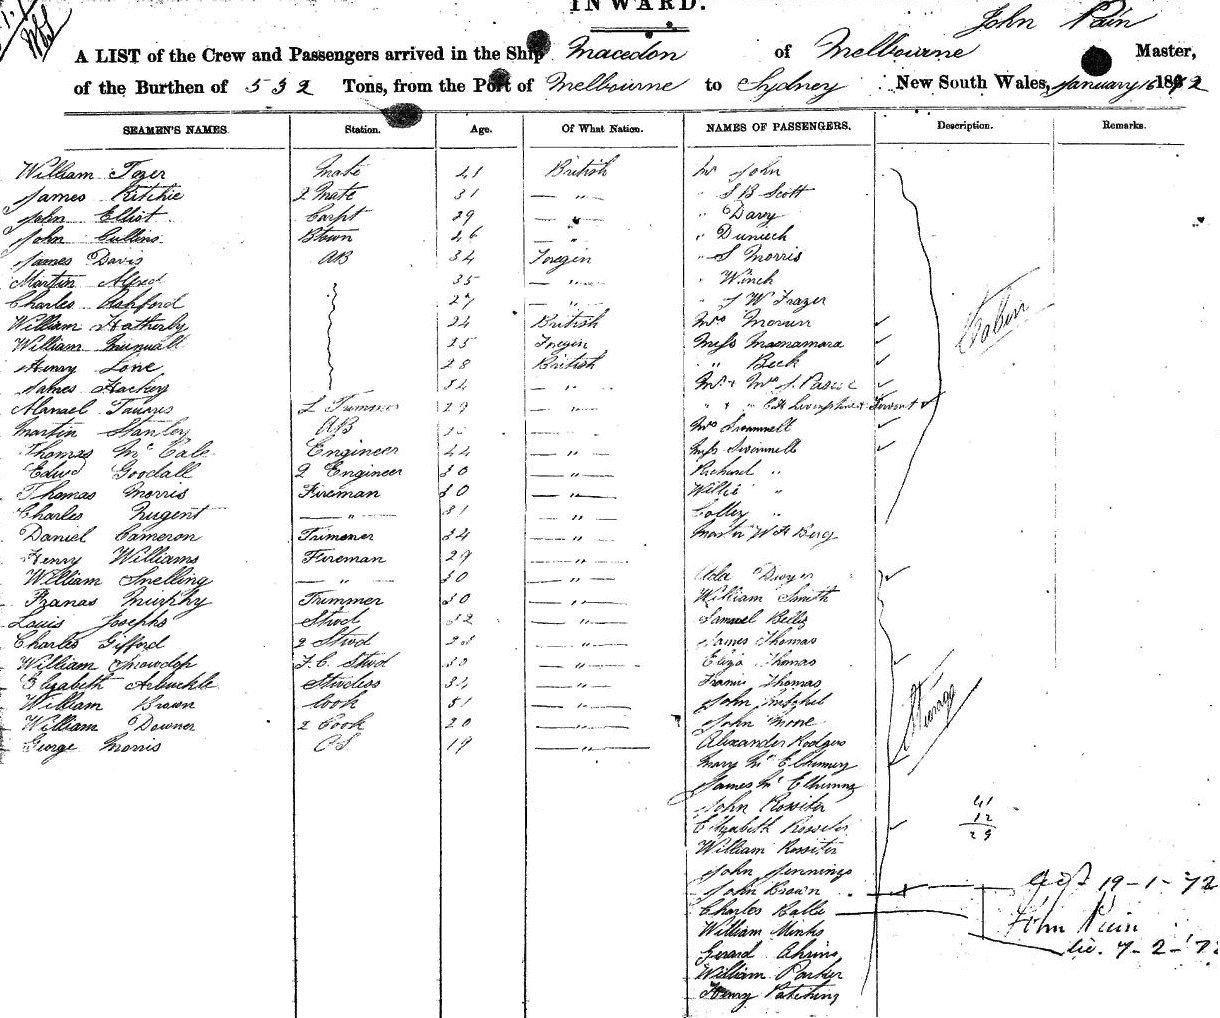 INWARD.
John Pain
A LIST of the Crew and Passengers arrived in the Ship Macedon of Melbourne Master,
of the Burthen of 532 Tons, from the Port of Melbourne to Sydney New South Wales, January 16 1872
SEAMEN'S NAMES. Station. Age. Of What Nation. NAMES OF PASSENGERS. Description. Remarks.
William Tozer Mate 41 British Mr John
James Ritchie 2 Mate 31 — " — " S B Scott
John Elliot Carpt 29 — " — " Davy
John Cullins 26 — " —
James Davis AB 34 Foregin " S Morris
Martin Alfred 35 — " — " Winch
Charles Ashford 27 — " — " J W Frazer
William Hatherly 24 British Mrs
William 25 Foregin Miss Macnamara
Henry Lone 28 British " Beck
James Hackey 34 — " — Mr & Mrs J. Pascoe
29 — " — " & " Servant
Martin Stanley AB — " — Mrs
Thomas McCale Engineer 44 — " — Miss
Edwd Goodall 2 Engineer 30 — " — Richard "
Thomas Morris Fireman 30 — " — Willie "
Charles Nugent — " — 31 — " — "
Daniel Cameron Trimmer 34 — " — Master W H Berg
Henry Williams Fireman 29 — " —
William Snelling — " — 30 — " — Ada Dwyer
Murphy Trimmer 30 — " — William Smith
Louis Josephs Stwd 32 — " — Samuel
Charles Gifford 2 Stwd 23 — " — James Thomas
William Snowdop F.C. Stwd 30 — " — Eliza Thomas
Elizabeth Arbuckle Stwdess 34 — " — Thomas
William Brown Cook 51 — " — John Mitchel
William Downer 2 Cook 20 — " — John Moore
George Morris OS 19 — " — Alexander Rodgers
Cabin
Mary
James
John Rossiter
Elizabeth Rossiter
William Rossiter
John Jennings
John Brown
Charles
William Minks
Gerard
William Parker
Henry Patching
41
12
29
19-1-72
John Pain
7-2-'72